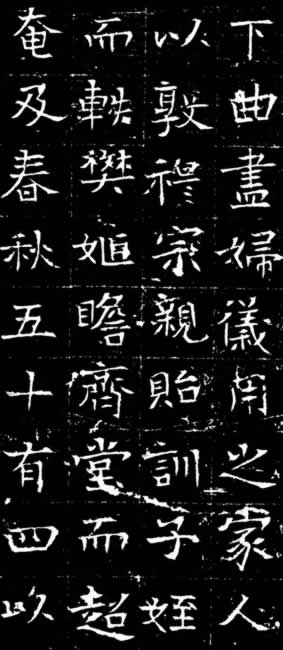 下曲盡婦儀用之家人
以敦穆宗親貽訓子姪
而軼樊姬瞻齊堂而超
奄及春秋五十有四以